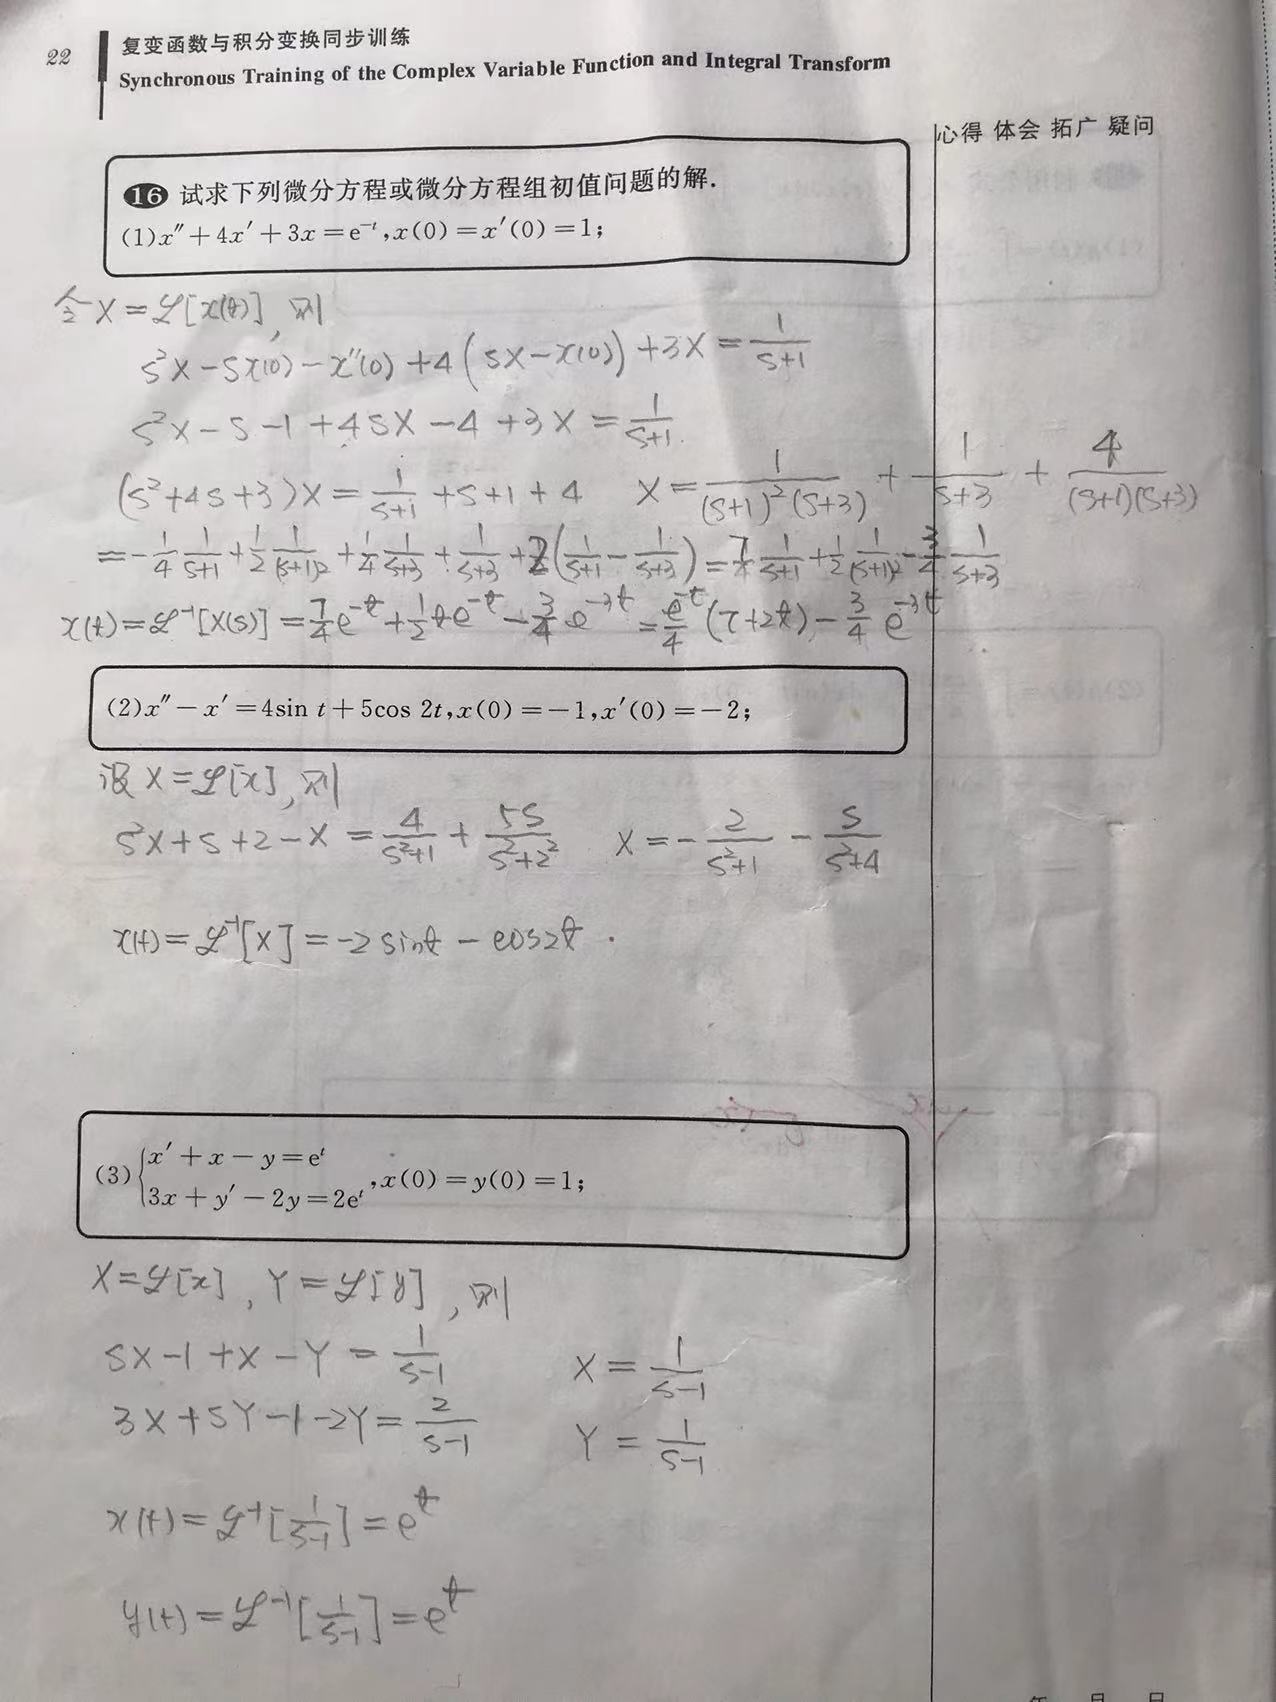 22
复变函数与积分变换同步训练
Synchronous Training of the Complex Variable Function and Integral Transform
心得 体会 拓广 疑问
16 试求下列微分方程或微分方程组初值问题的解.
(1)x″+4x′+3x=e⁻ᵗ,x(0)=x′(0)=1;
令X=ℒ[x(t)],则
s²X-sx(0)-x″(0)+4(sX-x(0))+3X=1/(s+1)
s²X-s-1+4sX-4+3X=1/(s+1)
(s²+4s+3)X=1/(s+1)+s+1+4 X=1/((s+1)²(s+3))+1/(s+3)+4/((s+1)(s+3))
=-1/4 1/(s+1)+1/2 1/(s+1)²+1/4 1/(s+3)+1/(s+3)+2(1/(s+1)-1/(s+3))=7/4 1/(s+1)+1/2 1/(s+1)²-3/4 1/(s+3)
x(t)=ℒ⁻¹[X(s)]=7/4 e⁻ᵗ+1/2 te⁻ᵗ-3/4 e⁻³ᵗ=e⁻ᵗ/4 (7+2t)-3/4 e⁻³ᵗ
(2)x″-x′=4sin t+5cos 2t,x(0)=-1,x′(0)=-2;
设X=ℒ[x],则
s²X+s+2-X=4/(s²+1)+5s/(s²+2²) X=-2/(s²+1)-s/(s²+4)
x(t)=ℒ⁻¹[X]=-2sint-cos2t.
(3){x′+x-y=eᵗ
3x+y′-2y=2eᵗ,x(0)=y(0)=1;
X=ℒ[x],Y=ℒ[y],则
sX-1+X-Y=1/(s-1) X=1/(s-1)
3X+sY-1-2Y=2/(s-1) Y=1/(s-1)
x(t)=ℒ⁻¹[1/(s-1)]=eᵗ
y(t)=ℒ⁻¹[1/(s-1)]=eᵗ
年 月 日